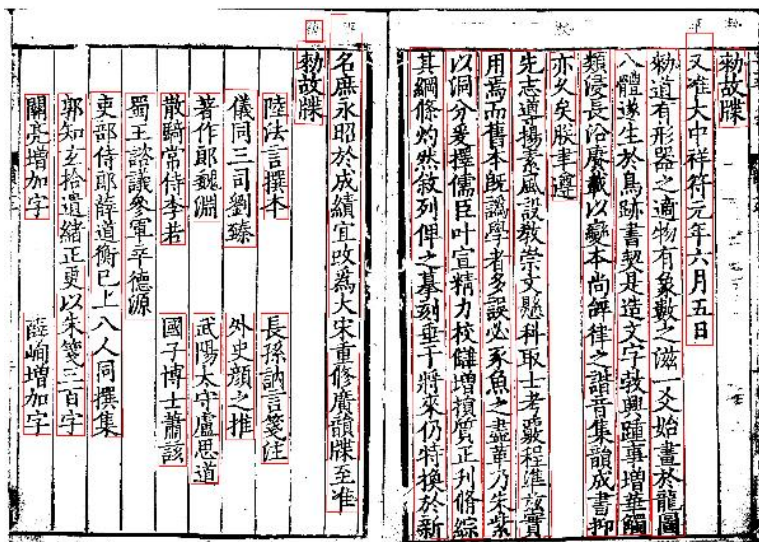 勑故牒
又准大中祥符元年六月五日
勑道有形器之適物有象數之滋一爻始畫於龍圖
八體遂生於鳥跡書契是造文字敦興踵事增華觸
類浸長洛慶載以變本尚辭律之諧音集韻成書抑
亦久矣朕聿遵
先志導揚素風設教崇文懸科取士考覈程准茲實
用焉而舊本既譌學者多誤必豕魚之盡革乃朱紫
以洞分爰擇儒臣叶宣精力校讎增損質正刊脩綜
其綱條灼然敘列俾之摹刻垂于將來仍特換於新
名庶永昭於成績宜改爲大宋重修廣韻牒至准
勑故牒
陸法言撰本
長孫訥言箋注
儀同三司劉臻
外史顏之推
著作郎魏淵
武陽太守盧思道
散騎常侍李若
國子博士蕭該
蜀王諮議參軍辛德源
吏部侍郎薛道衡已上八人同撰集
郭知玄拾遺緒正更以朱箋三百字
關亮增加字
薛峋增加字